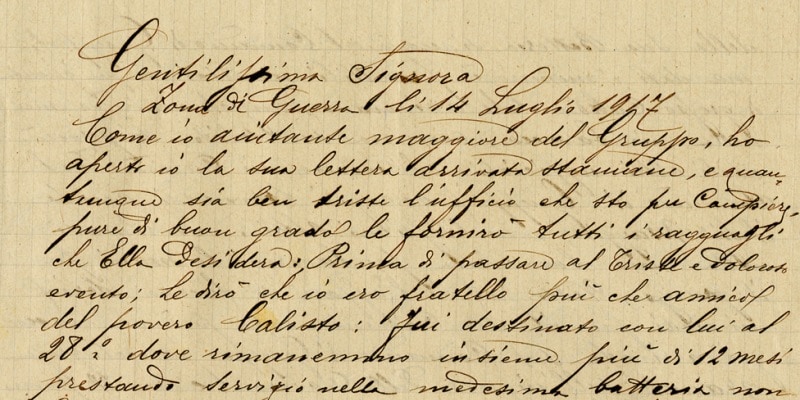 Gentilissima Signora
Zona di Guerra li 14 Luglio 1917
Come io aiutante maggiore del Gruppo, ho
aperto io la sua lettera arrivata stamane, e quan-
tunque sia ben triste l'ufficio che sto per Compiere,
pure di buon grado le fornirò tutti i ragguagli
che Ella desidera: Prima di passare al Triste e doloroso
evento; Le dirò che io ero fratello più che amico
del povero Calisto: Fui destinato con lui al
28º dove rimanemmo insieme più di 12 mesi
prestando servizio nella medesima batteria non